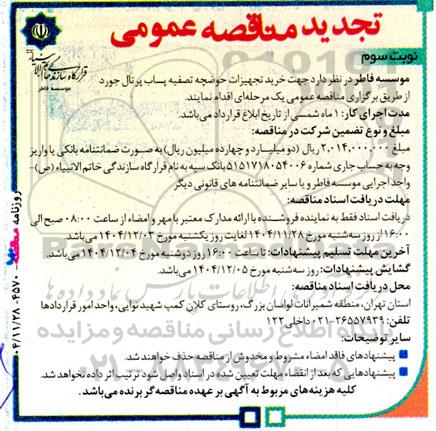 تجدید مناقصه عمومی
نوبت سوم
قرارگاه سازندگی خاتم الانبیاء
موسسه فاطر
موسسه فاطر در نظر دارد جهت خرید تجهیزات حوضچه تصفیه پساب پرتال جورد
از طریق برگزاری مناقصه عمومی یک مرحله‌ای اقدام نمایند.
مدت اجرای کار: ۱ ماه شمسی از تاریخ ابلاغ قرارداد می‌باشد.
مبلغ و نوع تضمین شرکت در مناقصه:
مبلغ ۲،۰۱۴،۰۰۰،۰۰۰ ریال (دو میلیارد و چهارده میلیون ریال) به صورت ضمانتنامه بانکی یا واریز
وجه به حساب جاری شماره ۵۱۵۱۷۱۸۰۵۴۰۰۶ بانک سپه به نام قرارگاه سازندگی خاتم الانبیاء (ص) –
واحد اجرایی موسسه فاطر و یا سایر ضمانتنامه های قانونی دیگر
مهلت دریافت اسناد مناقصه:
دریافت اسناد فقط به نماینده فروشنده با ارائه مدارک معتبر با مهر و امضاء از ساعت ۰۸:۰۰ صبح الی
۱۶:۰۰ از روز سه‌شنبه مورخ ۱۴۰۴/۱۱/۲۸ لغایت روز یکشنبه مورخ ۱۴۰۴/۱۲/۰۳ می‌باشد.
آخرین مهلت تسلیم پیشنهادات: تا ساعت ۱۶:۰۰ روز دوشنبه مورخ ۱۴۰۴/۱۲/۰۴ می‌باشد.
گشایش پیشنهادات: روز سه‌شنبه مورخ ۱۴۰۴/۱۲/۰۵ می‌باشد.
محل دریافت اسناد مناقصه:
استان تهران، منطقه شمیرانات لواسان بزرگ، روستای کلان کمپ شهید نوایی، واحد امور قراردادها
تلفن: ۲۶۵۵۷۹۳۹-۰۲۱ داخلی ۱۲۲
سایر توضیحات:
پیشنهادهای فاقد امضاء مشروط و مخدوش از مناقصه حذف خواهند شد.
پیشنهادهایی که بعد از انقضاء مهلت تعیین شده در اسناد واصل شود ترتیب اثر داده نخواهد شد.
کلیه هزینه‌های مربوط به آگهی بر عهده مناقصه‌گر برنده می‌باشد.
روزنامه
۰۴/۱۱/۲۸ - ۴۵۷۰
پایگاه اطلاع رسانی مناقصه و مزایده